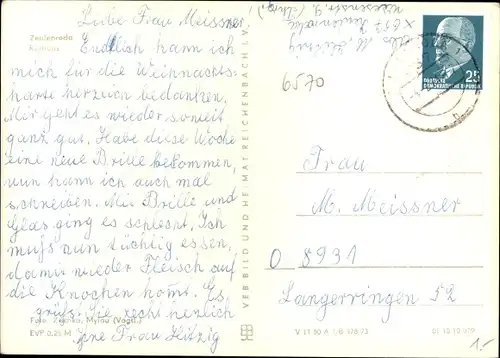 Liebe Frau Meissner,
Zeulenroda
Rathaus
Endlich kann ich
mich für die Weihnachts-
karte herzlich bedanken.
Mir geht es wieder soweit
ganz gut. Habe diese Woche
eine neue Brille bekommen,
nun kann ich auch mal
schreiben. Mit Brille und
Glas ging es schlecht. Ich
muß nun tüchtig essen,
damit wieder Fleisch auf
die Knochen komt. Es
grüßt Sie recht herzlich
Foto: Mylau (Vogtl.)
EVP 0,25 M
Ihre Frau Hitzig
VEB BILD UND HEIMAT REICHENBACH I. V.
6570
DEUTSCHE
DEMOKRATISCHE REPUBLIK
25
Frau
M. Meissner
O 8931
Langerringen 52
V 11 50 A 1/B 178/73
01 10 12 079
1.-